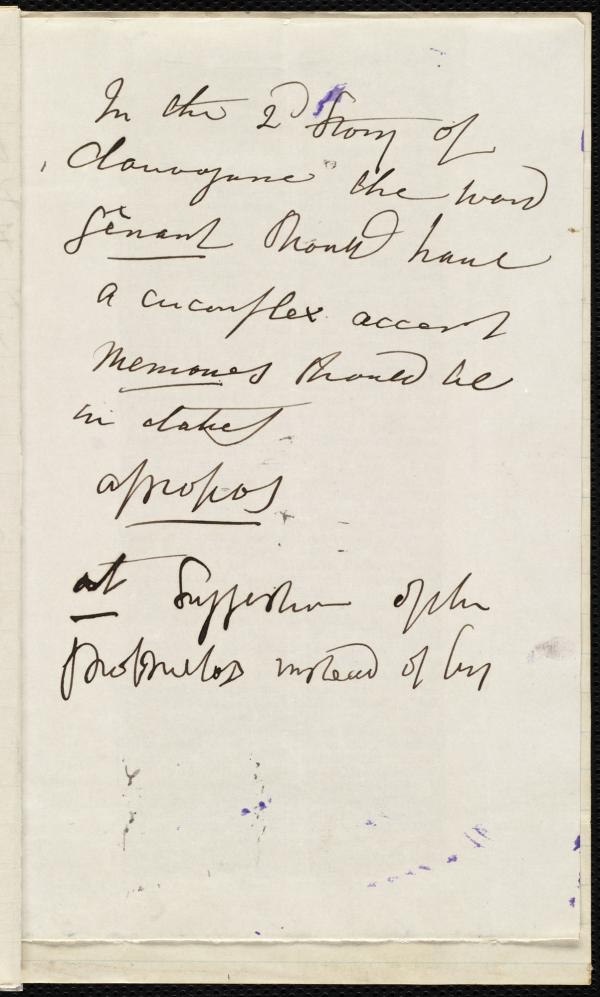 In the 2d Story of
Clairvoyance the word
gênant should have
a circumflex accent
Memoires should be
in italics
apropos
at suggestion of the
proprietors instead of by